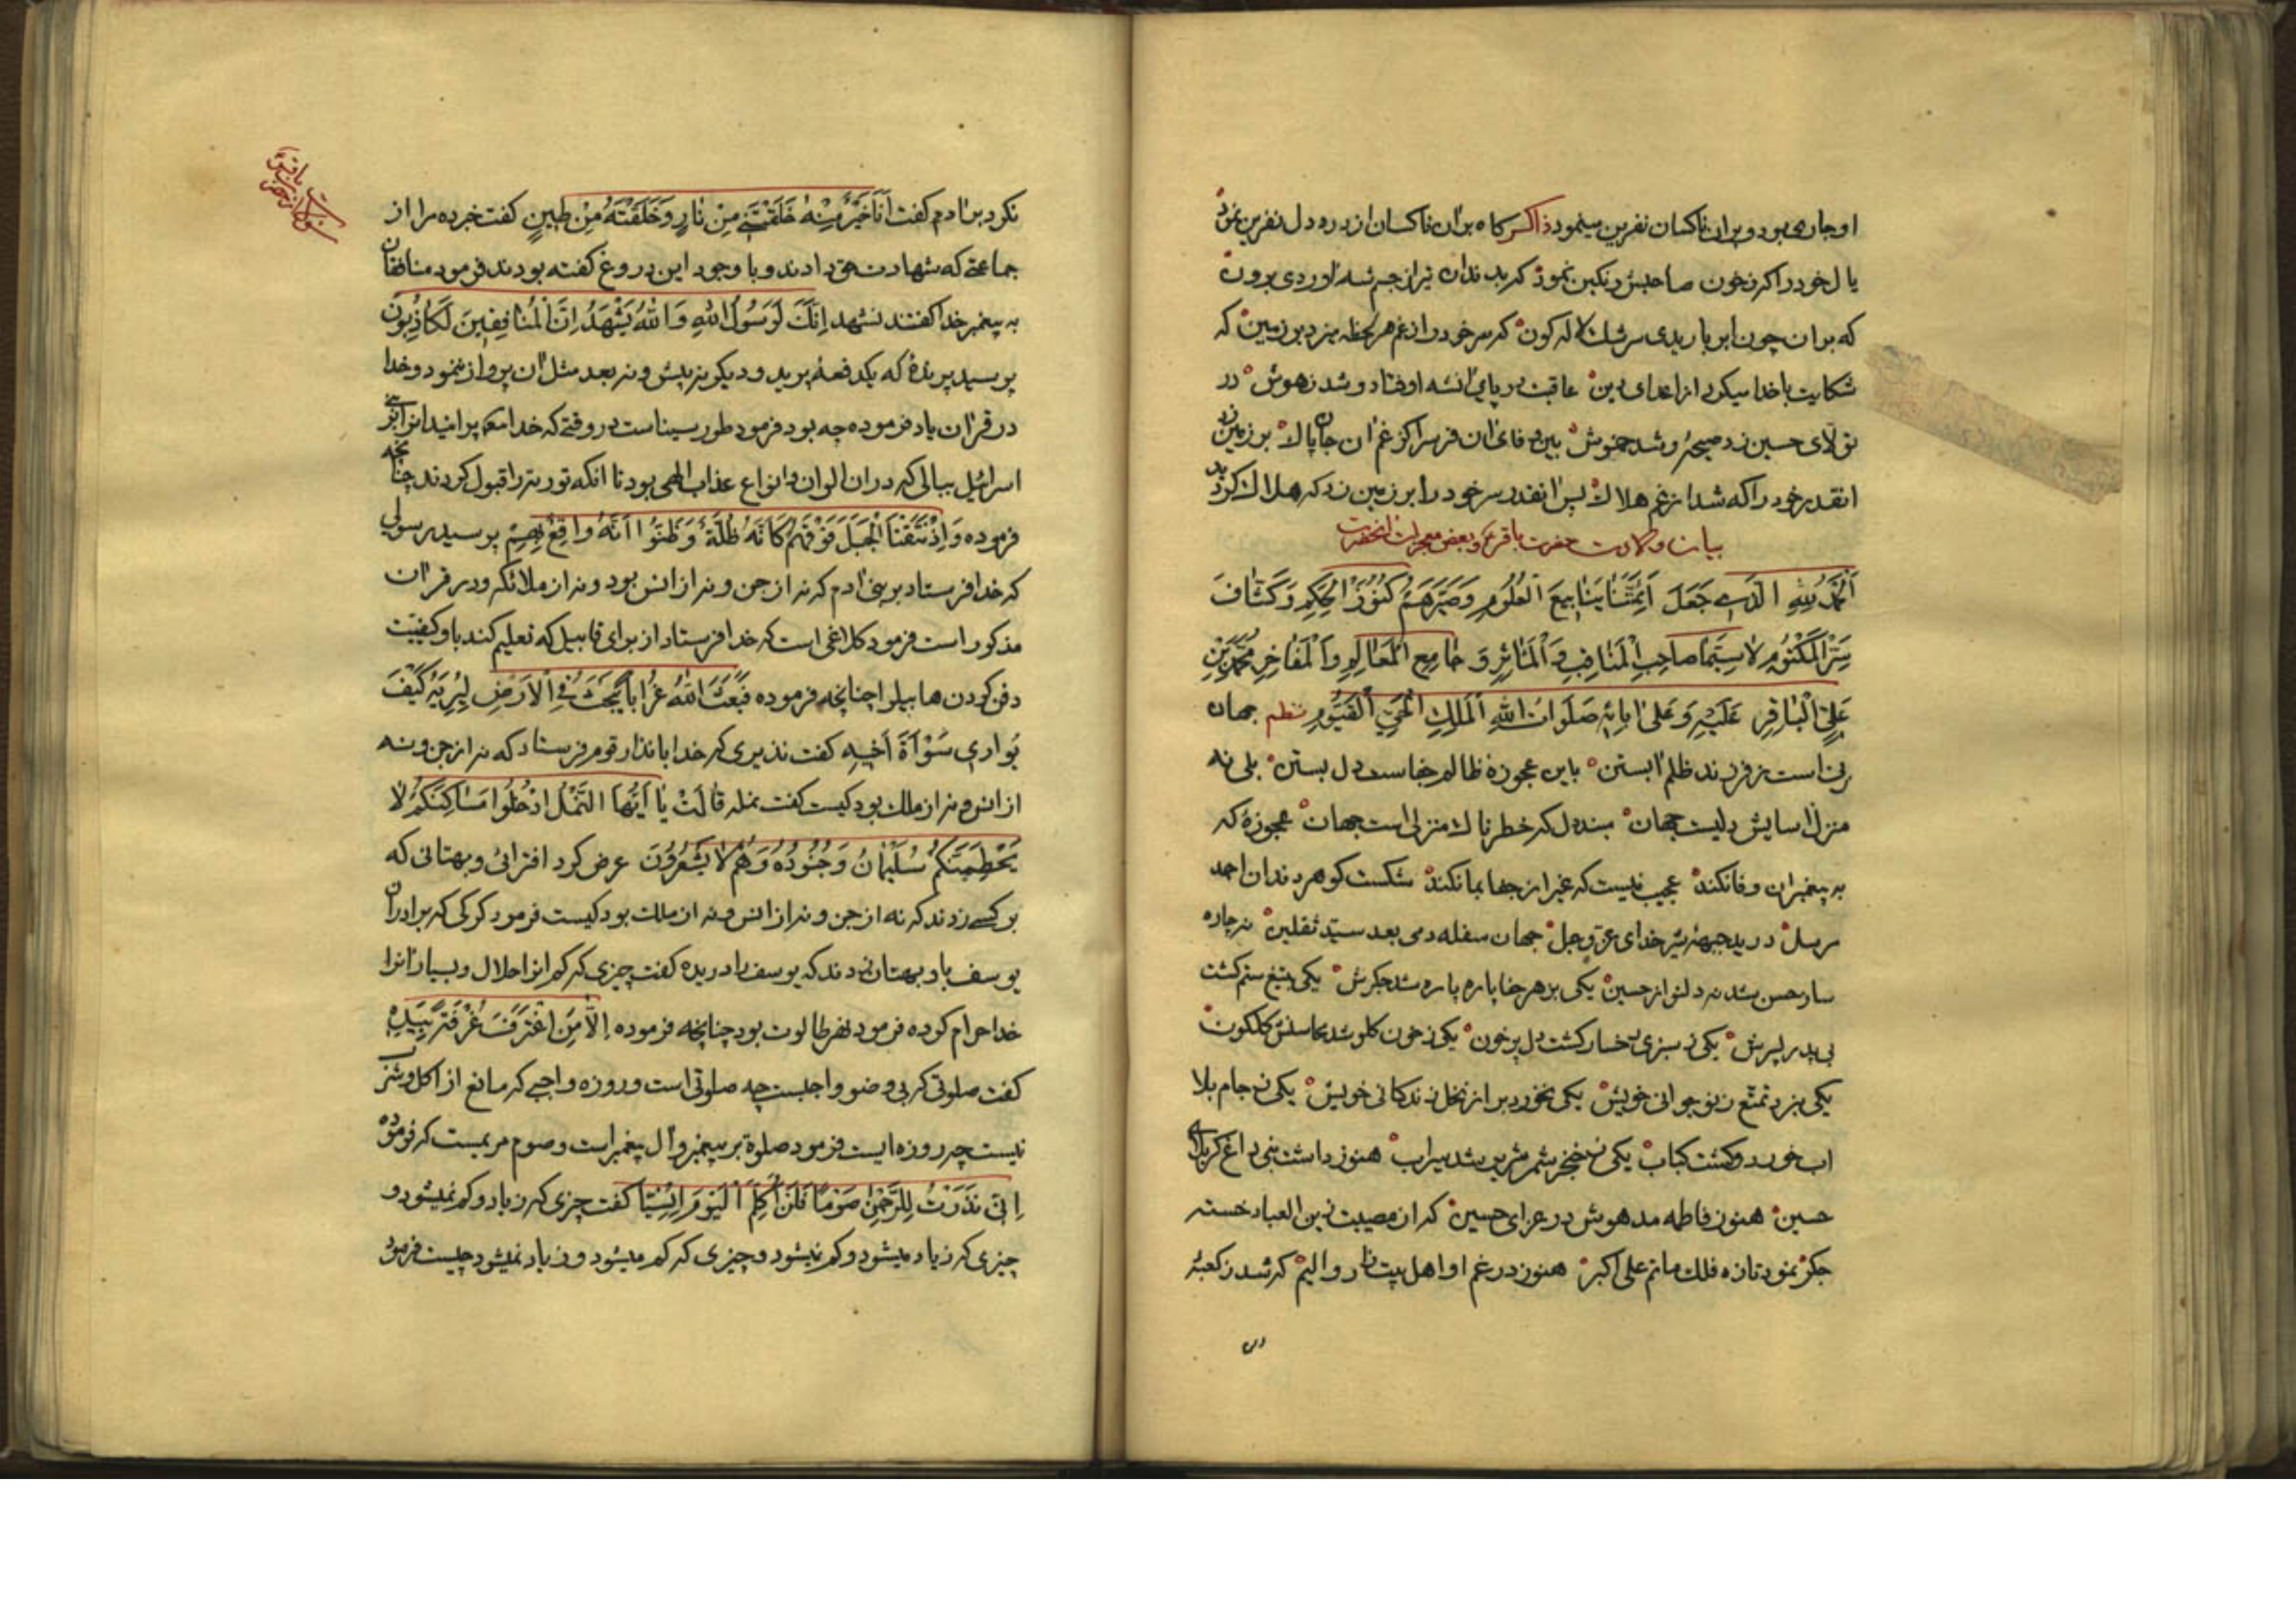 او جاری بود و بران ناکسان نفرین مینمود ذاکر کاه بران ناکسان از دره دل نفرین نمود
یال خود را کرد ز خون صاحبش رنکین نمود که بدندان تیر از جسم شه اوردی برون
که بران چون ابر باریدی سرشک لاله کون که سر خود را ز غم هر لحظه میزد بر زمین که
شکایت با خدا میکرد از اعدای دین عاقبت در پای ان شه اوفتاد و شد ز هوش در
تولای حسین زد صیحهٔ و شد خموش بین وفای ان فرس را کز غم ان جان پاک بر زمین زد
انقدر خود را که شد از غم هلاک پس انقدر سر خود را بر زمین زد که هلاک کردید
بیان ولادت حضرت باقر ع و بعض معجزات انحضرت
اَلْحَمْدُ لِلّٰهِ الَّذی جَعَلَ اَئِمَّتَنٰا یَنٰابیعَ الْعُلُومِ وَصَیَّرَهُمْ کُنُوزَ الْحِکَمِ وَکَشّٰافَ
سِرِّ الْمَکْتُومِ لاٰسِیَّمٰا صٰاحِبِ الْمَنٰاقِبِ وَالْمَاٰثِرِ وَ جٰامِعِ الْمَعٰالِمِ وَالْمَفٰاخِرِ مُحَمَّدِ بْنِ
عَلِیٍّ الْبٰاقِرِ عَلَیْهِ وَعَلیٰ اٰبٰائِهِ صَلَوٰاتُ اللّٰهِ الْمَلِکِ الْحَیِّ الْقَیُّومِ نظم جهان
زنی است ز فرزند ظلم ابستن باین عجوزهٔ ظالم خطاست دل بستن بلی نه
منزل اسایش دلیست جهان مبند دل که خطرناک منزلی است جهان عجوزهٔ که
به پیغمبران وفا نکند عجیب نیست که غیر از جفا بما نکند شکست کوهر دندان احمد
مرسل درید جبههٔ شیر خدای عز و جل جهان سفله دمی بعد سید ثقلین نه چاره
ساز حسن شد نه دلنواز حسین یکی بزهر جفا پاره پاره شد جکرش یکی بتیغ ستم کشت
بی پدر پسرش یکی ز سبزی رخسار کشت دل پر خون یکی ز خون کلو شد محاسنش کلکون
یکی نبرد تمتع ز نوجوانی خویش یکی نخورد بر از نخل زندکانی خویش یکی ز جام بلا
اب خورد و کشت کباب یکی ز خنجر شمر شریر شد سیراب هنوز داشت نبی داغ کربلای
حسین هنوز فاطمه مدهوش در عزای حسین که از مصیبت زین العباد خسته
جکر نمود تازه فلک ماتم علی اکبر هنوز در غم او اهل بیت زار و الیم که شد ز کعبهٔ
نکرد بر ادم کفت اَنَا خَیْرٌ مِنْهُ خَلَقْتَنی مِنْ نٰارٍ وَخَلَقْتَهُ مِنْ طینٍ کفت خبر ده مرا از
جماعتی که شهادت حق دادند و با وجود این دروغ کفته بودند فرمود منافقان
به پیغمبر خدا کفتند نشهد اِنَّکَ لَرَسُولُ اللّٰهِ وَ اللّٰهُ یَشْهَدُ اِنَّ الْمُنٰافِقینَ لَکٰاذِبُونَ
پرسید پرندهٔ که یکدفعه پرید و دیکر نه پیش و نه بعد مثل ان پرواز ننمود و خدا
در قران یاد فرموده چه بود فرمود طور سیناست در وقتی که خدا پرانید انرا بر بنی
اسرائیل ببالی که در ان الوان و انواع عذاب الهی بود تا انکه توریة را قبول کردند چنانچه
فرموده وَاِذْ نَتَقْنَا الْجَبَلَ فَوْقَهُمْ کَاَنَّهُ ظُلَّةٌ وَظَنُّوا اَنَّهُ وٰاقِعٌ بِهِمْ پرسید رسولی
که خدا فرستاد بر بنی ادم که نه از جن و نه از انس بود و نه از ملائکه و در قران
مذکور است فرمود کلاغی است که خدا فرستاد از برای قابیل که تعلیم کند باو کیفیت
دفن کردن هابیل را چنانچه فرموده فَبَعَثَ اللّٰهُ غُرٰاباً یَبْحَثُ فِی الْاَرْضِ لِیُرِیَهُ کَیْفَ
یُوٰاری سَوْاَةَ اَخیهِ کفت نذیری که خدا بانذار قوم فرستاد که نه از جن و نه
از انس و نه از ملک بود کیست کفت نمله قٰالَتْ یٰا اَیُّهَا النَّمْلُ ادْخُلُوا مَسٰاکِنَکُمْ لاٰ
یَحْطِمَنَّکُمْ سُلَیْمٰانُ وَجُنُودُهُ وَهُمْ لاٰ یَشْعُرُونَ عرض کرد افترائی و بهتانی که
بر کسی زدند که نه از جن و نه از انس و نه از ملک بود کیست فرمود کرکی که برادران
یوسف باو بهتان زدند که یوسف را دریده کفت چیزی که کم انرا حلال و بسیار انرا
خدا حرام کرده فرمود نهر طالوت بود چنانچه فرموده اِلّٰا مَنِ اغْتَرَفَ غُرْفَةً بِیَدِهِ
کفت صلوتی که بی وضو واجبست چه صلوتی است و روزه واجبی که مانع از اکل و شرب
نیست چه روزه ایست فرمود صلوة بر پیغمبر و ال پیغمبر است و صوم مریمست که فرموده
اِنّی نَذَرْتُ لِلرَّحْمٰنِ صَوْماً فَلَنْ اُکَلِّمَ الْیَوْمَ اِنْسِیّاً کفت چیزی که زیاد و کم نمیشود و
چیزی که زیاد میشود و کم نمیشود و چیزی که کم میشود و زیاد نمیشود چیست فرمود